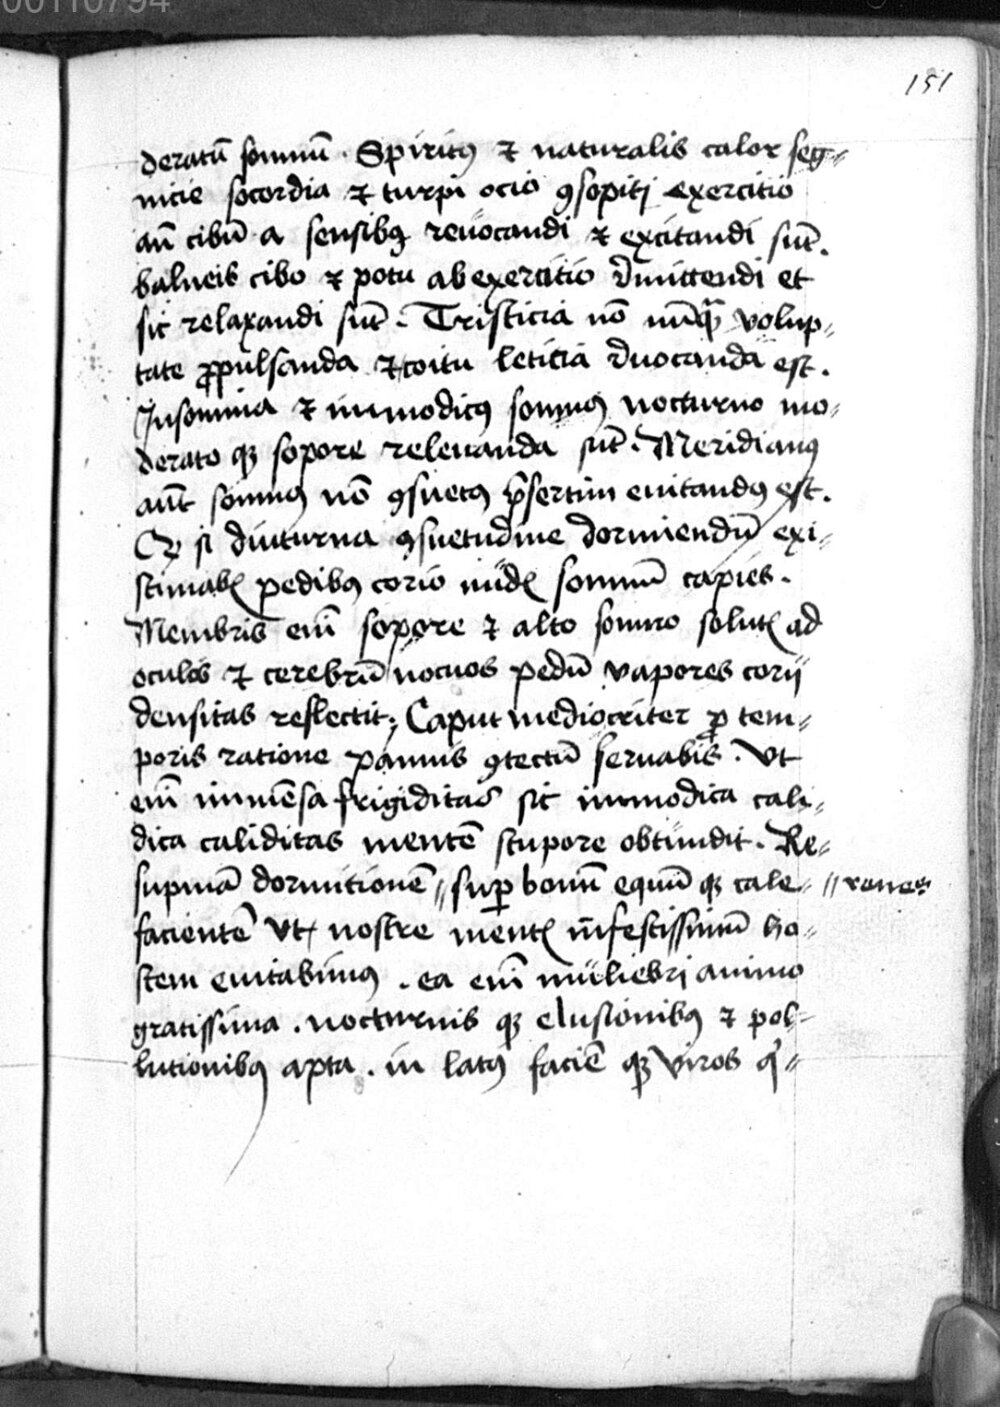 00110794
151
deratū somnū. Spiritꝰ ⁊ naturalis calor seg⸗
nicie socordia ⁊ turpi ocio ꝯsopiti exercitio
añ cibū a sensibꝫ reuocandi ⁊ excitandi sūt.
balneis cibo ⁊ potu ab exercitio dimittendi et
sic relaxandi sūt. Tristicia nō nūqᷓ volup⸗
tate ꝓpulsanda ⁊ coitu leticia duocanda est.
Insomnia ⁊ inmodicꝰ somnꝰ nocturno mo⸗
derato qꝫ sopore releuanda sūt. Meridianꝰ
aūt somnꝰ nō ꝯsuetꝰ p̄sertim euitandꝰ est.
Qꝫ si diuturna ꝯsuetudine dormiendū exi⸗
stimabꝭ pedibꝰ corio nudꝭ somnū capies.
Membris em̄ sopore ⁊ alto somno solutꝭ ad
oculos ⁊ cerebrū nocuos pedū vapores corij
densitas reflectit; Caput mediocriter ꝓ tem⸗
poris ratione pannis ꝯtectū seruabis. Vt
em̄ inmēsa frigiditas sic inmodica cali⸗
dica caliditas mentē stupore obtundit. Re⸗
supinā dormitionē // suꝑ bonū equū qꝫ cale⸗ // renes
facientē vt nostre mentꝭ infestissimū ho⸗
stem euitabimꝰ. ea em̄ muliebri animo
gratissima. nocturnis qꝫ elusionibꝰ ⁊ pol⸗
lutionibꝰ apta. in latꝰ faciē qꝫ viros q⸗